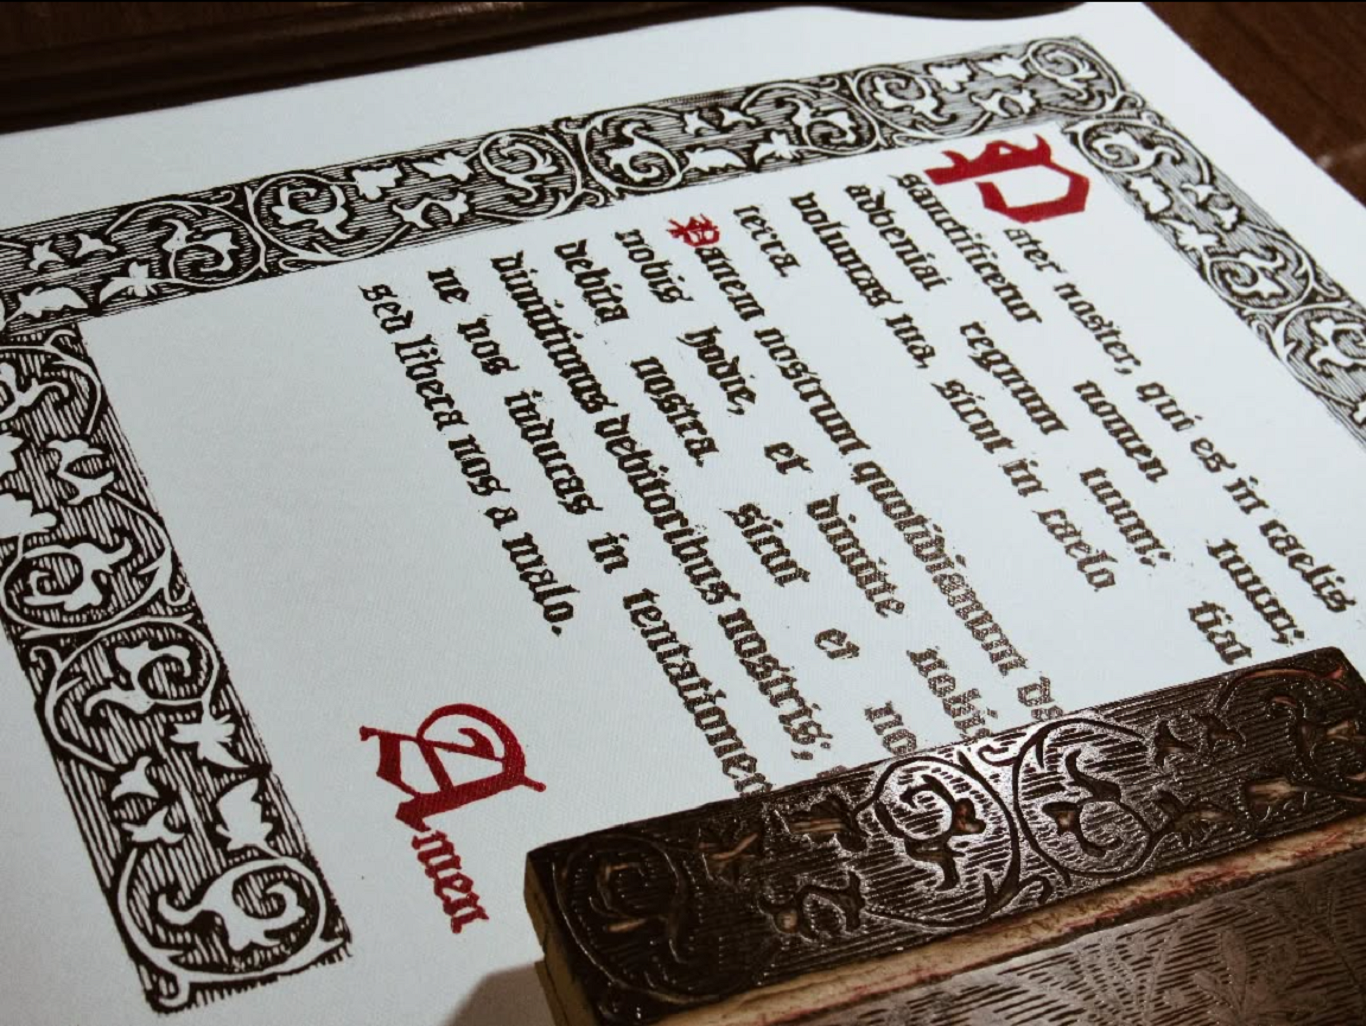 Pater noster, qui es in caelis
sanctificetur nomen tuum;
adveniat regnum tuum; fiat
voluntas tua, sicut in caelo
terra.
Panem nostrum quotidianum da
nobis hodie, et dimitte nobis
debita nostra. sicut et no
dimittimus debitoribus nostris;
ne nos inducas in tentationem
sed libera nos a malo.
Amen